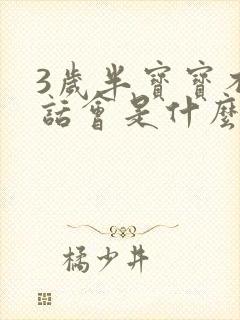 3歲半寶寶不
話會是什麼
橘少井